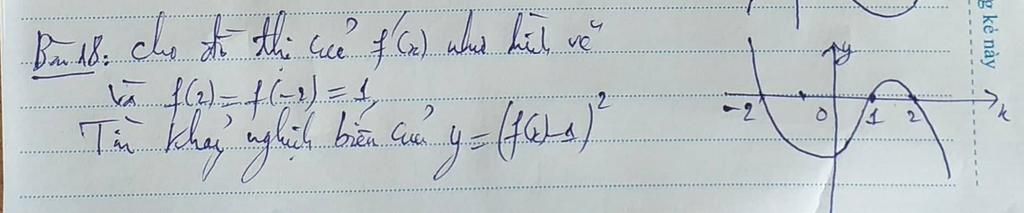 Bài 18: Cho đồ thị của f'(x) như hình vẽ
và f(2) = f(-2) = 1,
Tìm khoảng nghịch biến của y = (f(x)-1)²
y
-2 0 1 2 x
g kẻ này